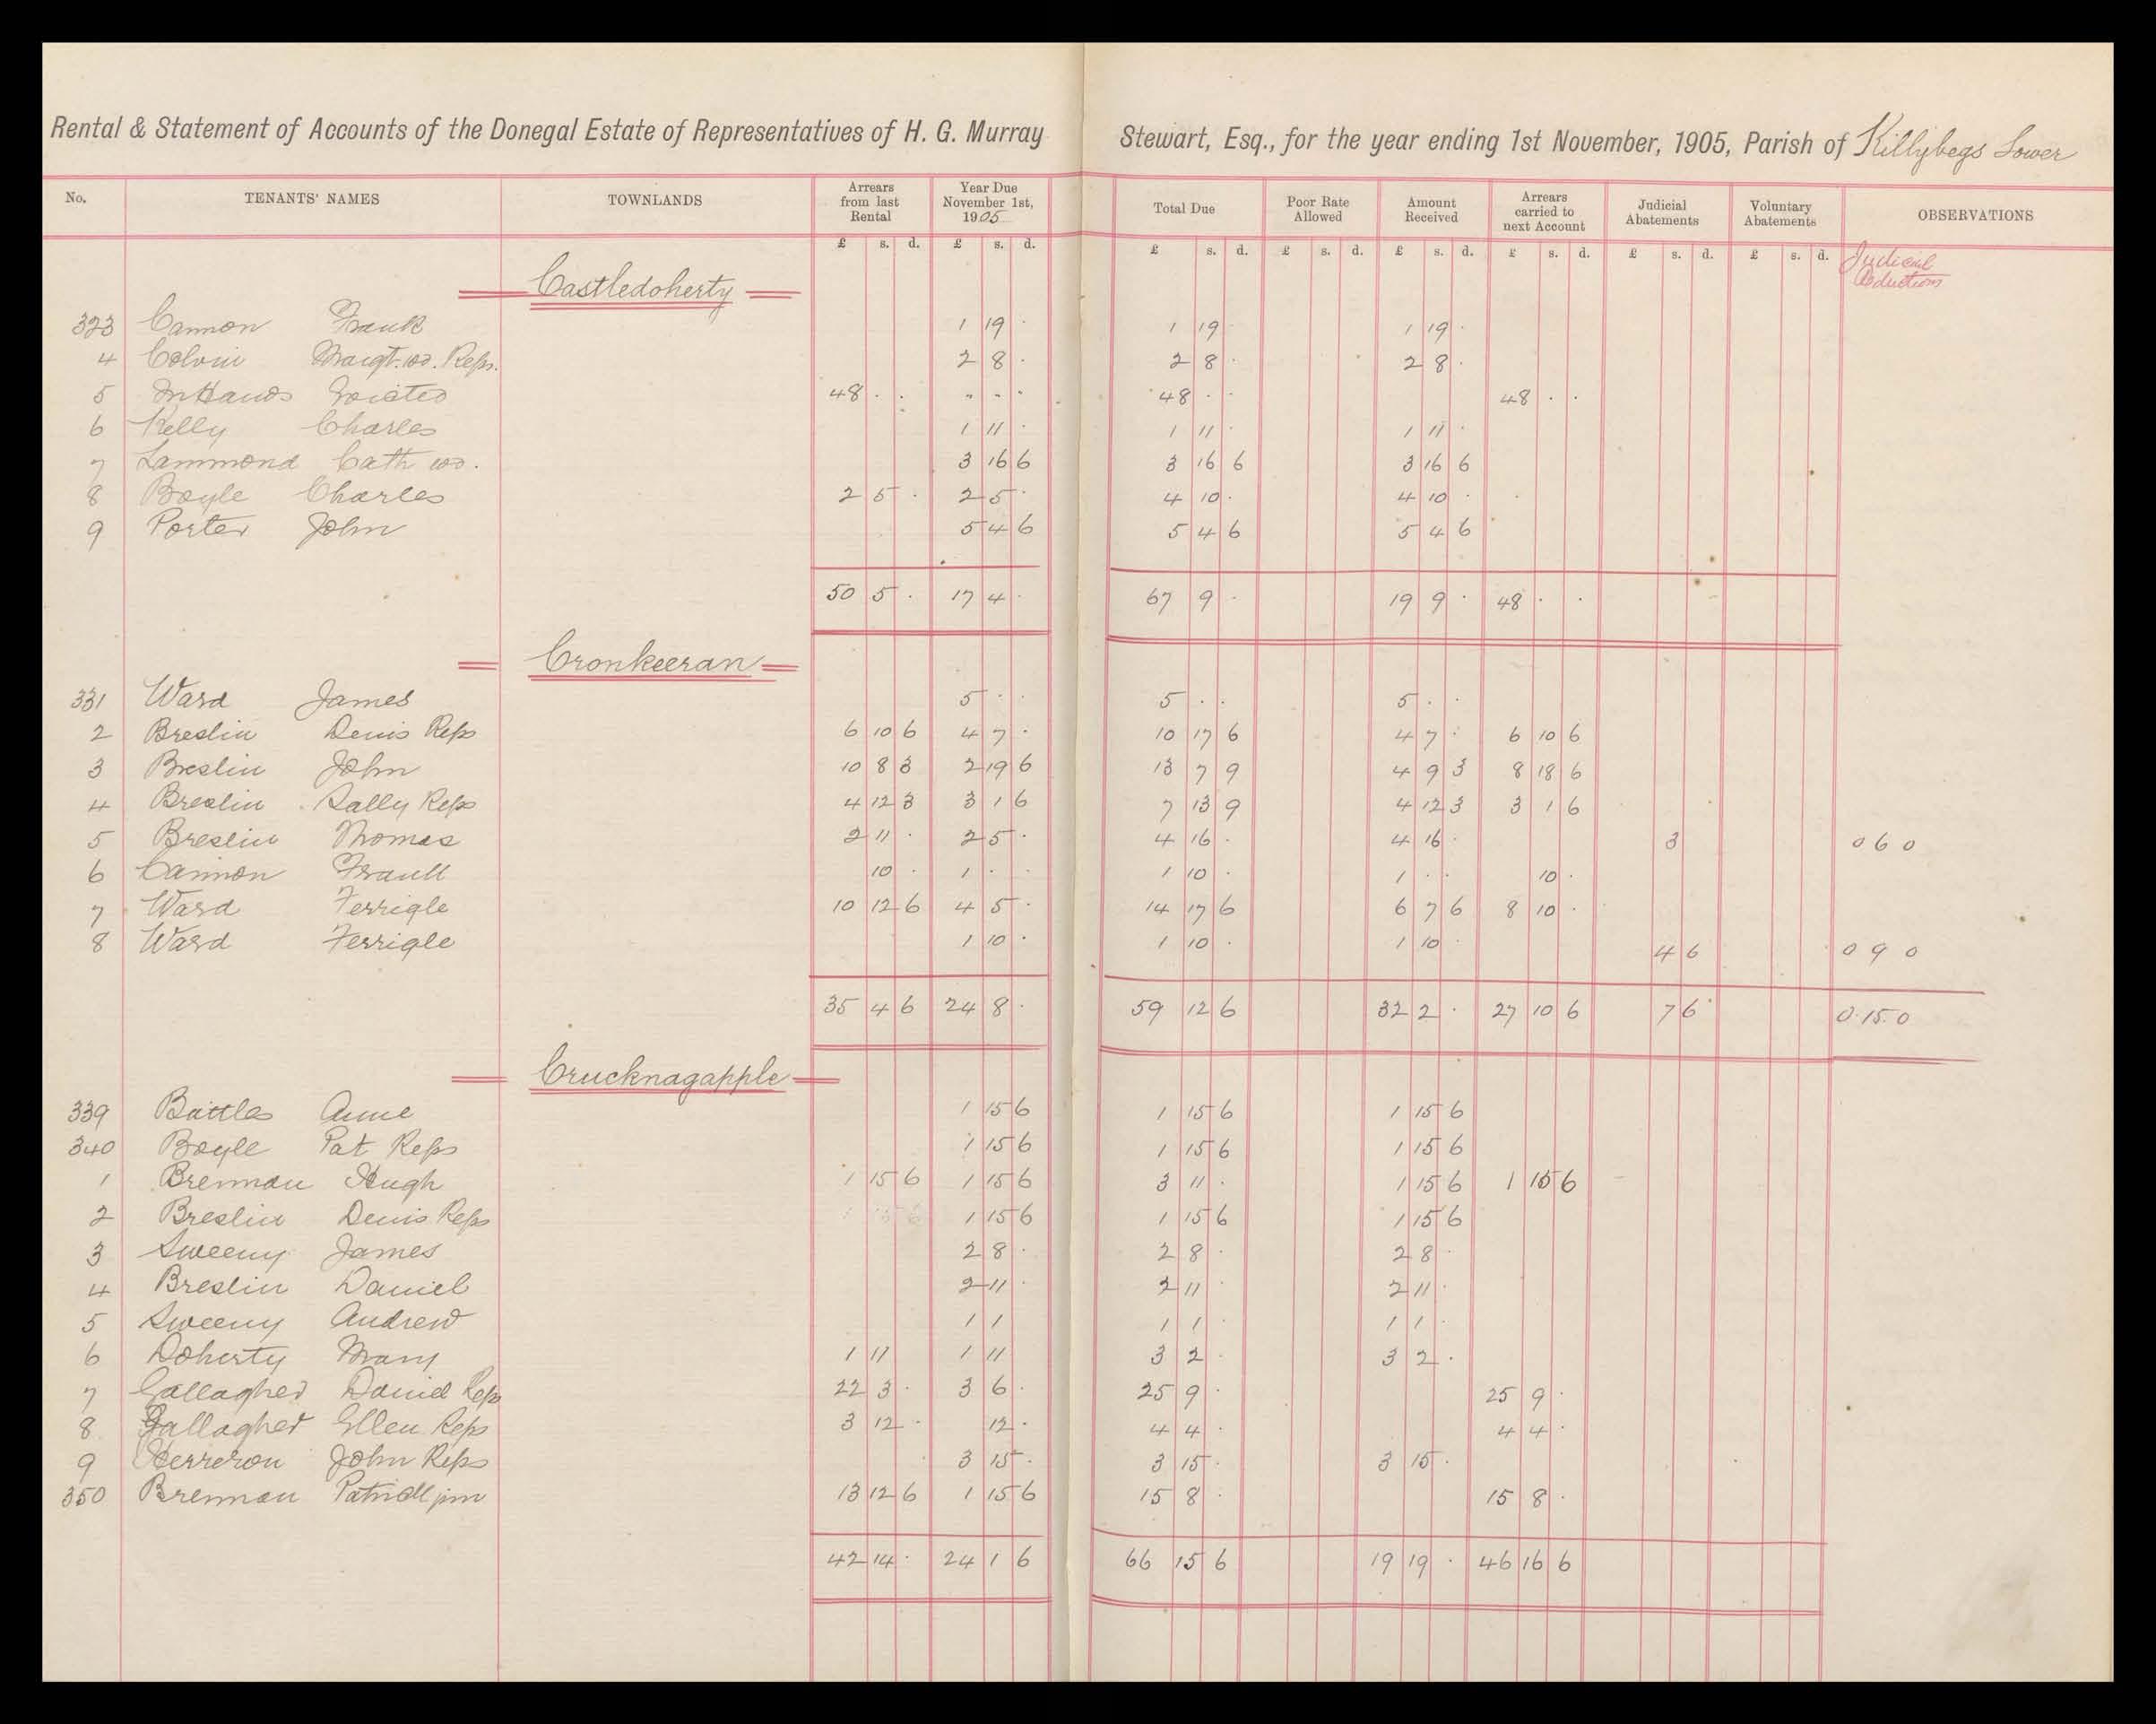 Rental & Statement of Accounts of the Donegal Estate of Representatives of H. G. Murray Stewart, Esq., for the year ending 1st November, 1905, Parish of Killybegs Lower
No. TENANTS' NAMES TOWNLANDS Arrears from last Rental Year Due November 1st, 1905 Total Due Poor Rate Allowed Amount Received Arrears carried to next Account Judicial Abatements Voluntary Abatements OBSERVATIONS
£ s. d. £ s. d. £ s. d. £ s. d. £ s. d. £ s. d. £ s. d. £ s. d. Judicial
Castledoherty
323 Cannon Frank 1 19 · 1 19 · 1 19 ·
4 Colvin Margt. wd. Reps. 2 8 · 2 8 · 2 8 ·
5 In Hands 48 · · " " " 48 · · 48 · ·
6 Kelly Charles 1 11 · 1 11 · 1 11 ·
7 Lammond Cath wd. 3 16 6 3 16 6 3 16 6
8 Boyle Charles 2 5 · 2 5 · 4 10 · 4 10 ·
9 Porter John 5 4 6 5 4 6 5 4 6
50 5 · 17 4 · 67 9 · 19 9 · 48 · ·
Cronkeeran
331 Ward James 5 · · 5 · · 5 · ·
2 Breslin Denis Reps 6 10 6 4 7 · 10 17 6 4 7 · 6 10 6
3 Breslin John 10 8 3 2 19 6 13 7 9 4 9 3 8 18 6
4 Breslin Sally Reps 4 12 3 3 1 6 7 13 9 4 12 3 3 1 6
5 Breslin Thomas 2 11 · 2 5 · 4 16 · 4 16 · 3 0 6 0
6 Cannon Frank 10 · 1 · · 1 10 · 1 · · 10 ·
7 Ward Ferrigle 10 12 6 4 5 · 14 17 6 6 7 6 8 10 ·
8 Ward Ferrigle 1 10 · 1 10 · 1 10 · 4 6 0 9 0
35 4 6 24 8 · 59 12 6 32 2 · 27 10 6 7 6 0 15 0
Crucknagapple
339 Battles Anne 1 15 6 1 15 6 1 15 6
340 Boyle Pat Reps 1 15 6 1 15 6 1 15 6
1 Brennan Hugh 1 15 6 1 15 6 3 11 · 1 15 6 1 15 6
2 Breslin Denis Reps 1 15 6 1 15 6 1 15 6
3 Sweeny James 2 8 · 2 8 · 2 8 ·
4 Breslin Daniel 2 11 · 2 11 · 2 11 ·
5 Sweeny Andrew 1 1 1 1 · 1 1 ·
6 Doherty Mary 1 11 1 11 3 2 · 3 2 ·
7 Gallagher Daniel Reps 22 3 · 3 6 · 25 9 · 25 9 ·
8 Gallagher Ellen Reps 3 12 · 12 · 4 4 · 4 4 ·
9 Herreron John Reps 3 15 · 3 15 · 3 15 ·
350 Brennan Patrick jnr 13 12 6 1 15 6 15 8 · 15 8 ·
42 14 · 24 1 6 66 15 6 19 19 · 46 16 6